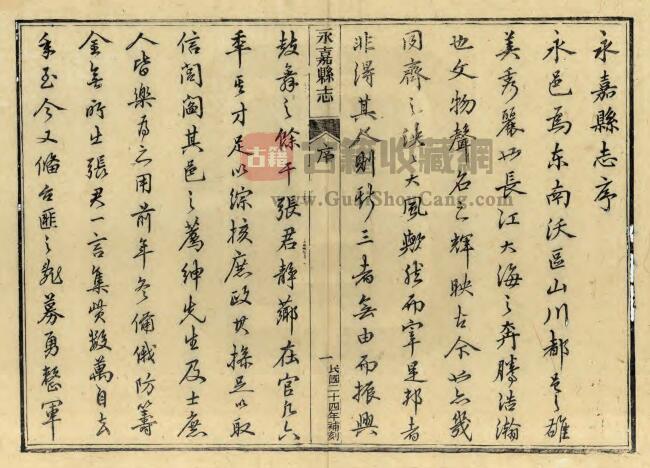 永嘉縣志序
永邑爲东南沃區山川都邑之雄
美秀麗如長江大海之奔騰浩瀚
也文物聲名之輝映古今也幾
同齊之泱泱大風歟然而宰是邦者
非得其人則 三者無由而振興
永嘉縣志
序
一
民國二十四年補刻
鼓舞之餘干張君靜薌在官凡六
年其才足以綜核庶政其操足以取
信閭閻其邑之薦紳先生及士庶
人皆樂爲之用前年冬備俄防籌
金無所出張君一言集貲數萬自去
冬至今又備台匪之 募勇整軍
古籍
古籍收藏網
www.GujiShopCang.com